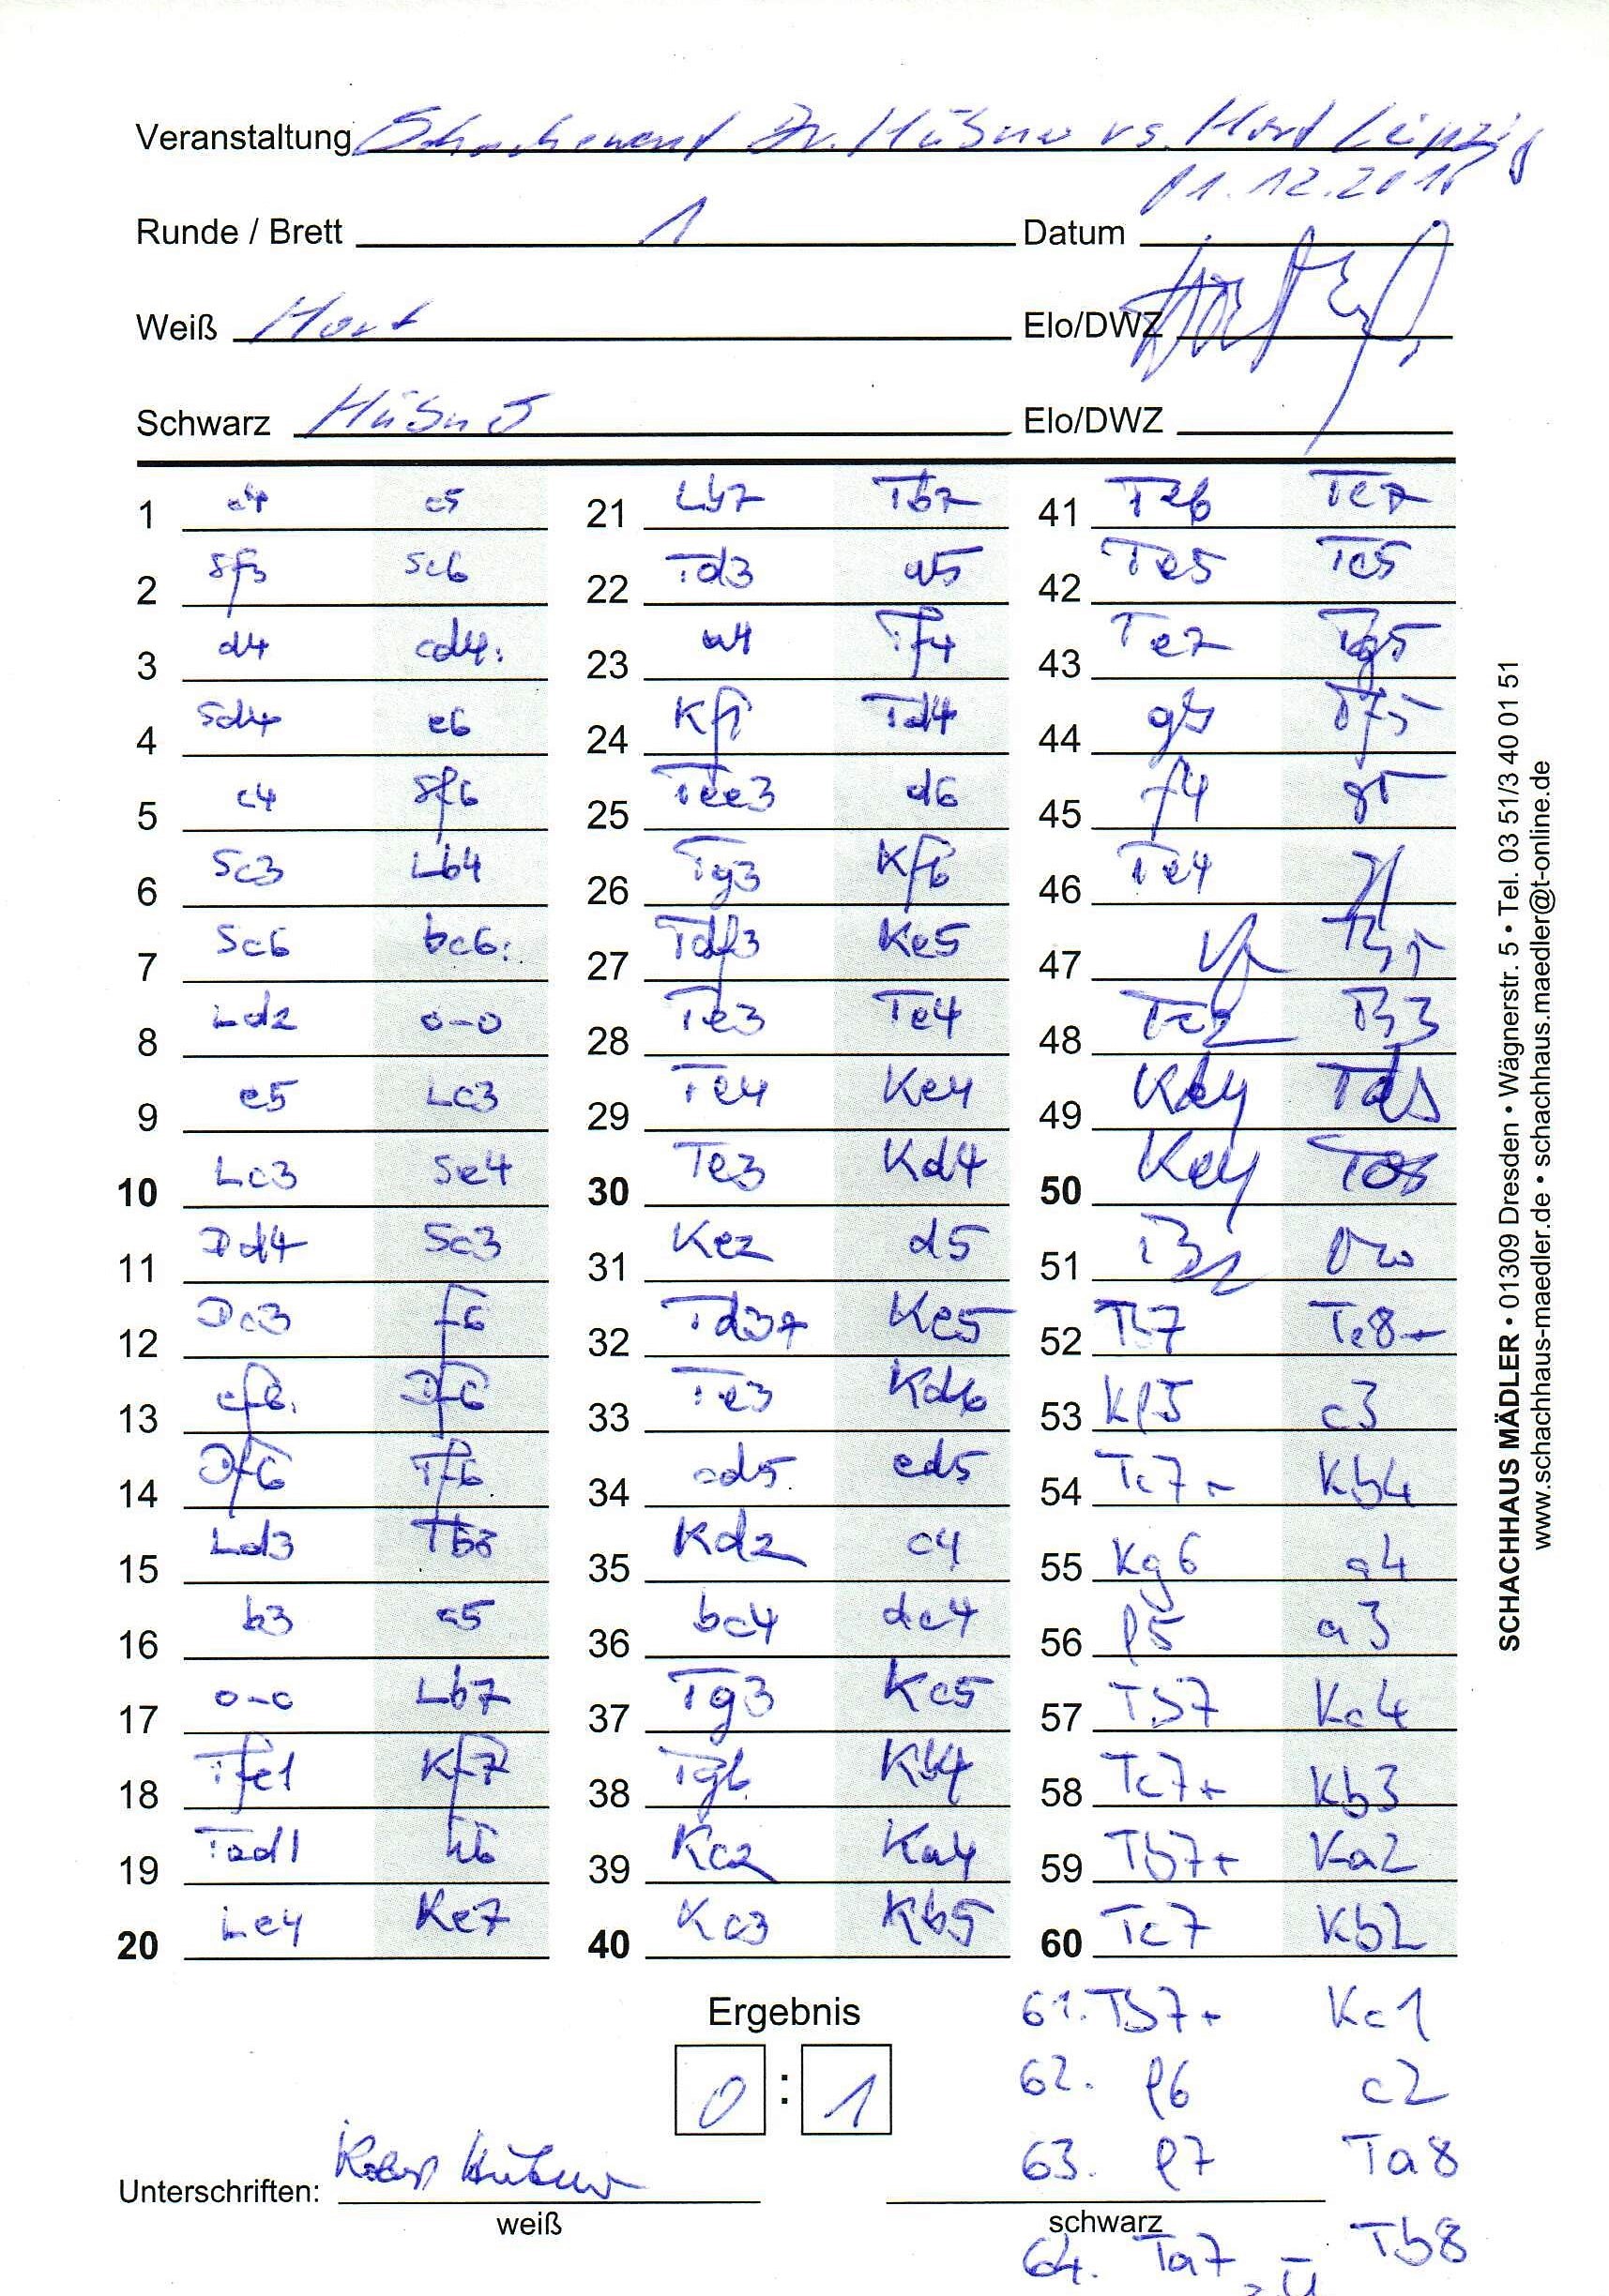 Veranstaltung Schachevent Dr. Hübner vs. Hort Leipzig
01.12.2016
Runde / Brett 1 Datum
Weiß Hort Elo/DWZ
Schwarz Hübner Elo/DWZ
1 e4 c5
2 Sf3 Sc6
3 d4 cd4:
4 Sd4 e6
5 c4 Sf6
6 Sc3 Lb4
7 Sc6 bc6:
8 Ld2 0-0
9 e5 Lc3
10 Lc3 Se4
11 Dd4 Sc3
12 Dc3 f6
13 ef6: Df6
14 Df6 Tf6
15 Ld3 Tb8
16 b3 c5
17 0-0 Lb7
18 Tfe1 Kf7
19 Tad1 h6
20 Le4 Ke7
21 Lb7 Tb7
22 Td3 a5
23 a4 Tf4
24 Kf1 Td4
25 Tee3 d6
26 Tg3 Kf6
27 Tdf3 Ke5
28 Te3 Te4
29 Te4 Ke4
30 Te3 Kd4
31 Ke2 d5
32 Td3+ Ke5
33 Te3 Kd6
34 cd5 ed5
35 Kd2 c4
36 bc4 dc4
37 Tg3 Kc5
38 Tg6 Kb4
39 Kc2 Ka4
40 Kc3 Kb5
41 Te6 Tc7
42 Te5 Tc5
43 Te7 Tg5
44 g4 Tf5
45 f4 g5
46 Te4
47
48 Tb3
49 Kd4
50 Ke4
51
52 Tb7 Te8+
53 Kf5 c3
54 Tc7 Kb4
55 Kg6 a4
56 f5 a3
57 Tb7 Kc4
58 Tc7+ Kb3
59 Tb7+ Ka2
60 Tc7 Kb2
61. Tb7+ Kc1
62. f6 c2
63. f7 Ta8
64. Ta7 Tb8
Ergebnis
0 : 1
Unterschriften: Robert Hübner
weiß schwarz
SCHACHHAUS MÄDLER • 01309 Dresden • Wägnerstr. 5 • Tel. 03 51/3 40 01 51
www.schachhaus-maedler.de • schachhaus.maedler@t-online.de